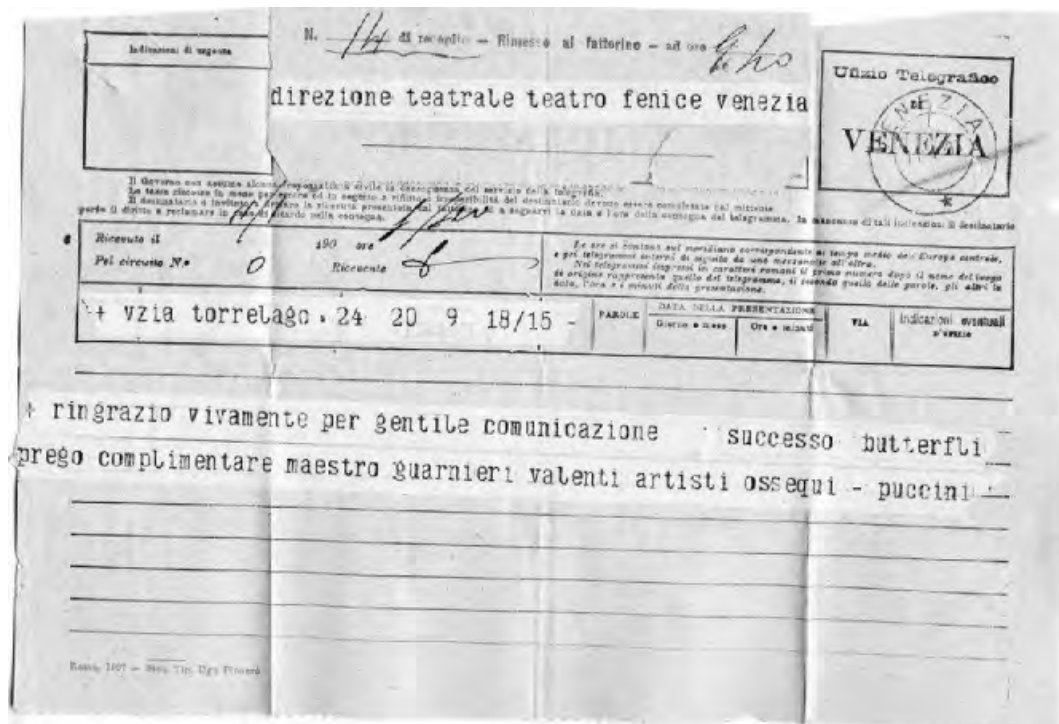 Indicazioni di urgenza
N. 14 di recapito — Rimesso al fattorino — ad ore
direzione teatrale teatro fenice venezia
Ufizio Telegrafico
di
VENEZIA
VENEZIA
Il Governo non assume alcuna responsabilità civile in conseguenza del servizio della telegrafia.
Le tasse riscosse in meno per errore od in seguito a rifiuto o irreperibilità del destinatario devono essere completate dal mittente
Il destinatario è invitato a firmare la ricevuta presentata dal fattorino e a segnarvi la data e l'ora della consegna del telegramma. In mancanza di tali indicazioni il destinatario
perde il diritto a reclamare in caso di ritardo nella consegna.
Ricevuto il 190 ore
Pel circuito N.° 0 Ricevente
Le ore si contano sul meridiano corrispondente al tempo medio dell'Europa centrale,
e pei telegrammi interni di seguito da una mezzanotte all'altra.
Nei telegrammi impressi in caratteri romani il primo numero dopo il nome del luogo
di origine rappresenta quello del telegramma, il secondo quello delle parole, gli altri la
data, l'ora e i minuti della presentazione.
+ vzia torrelago . 24 20 9 18/15 -
PAROLE
DATA DELLA PRESENTAZIONE
Giorno e mese
Ore e minuti
VIA
Indicazioni eventuali
d'ufficio
+ ringrazio vivamente per gentile comunicazione successo butterfli
prego complimentare maestro guarnieri valenti artisti ossequi - puccini
Roma, 1907 — Tip. Ugo